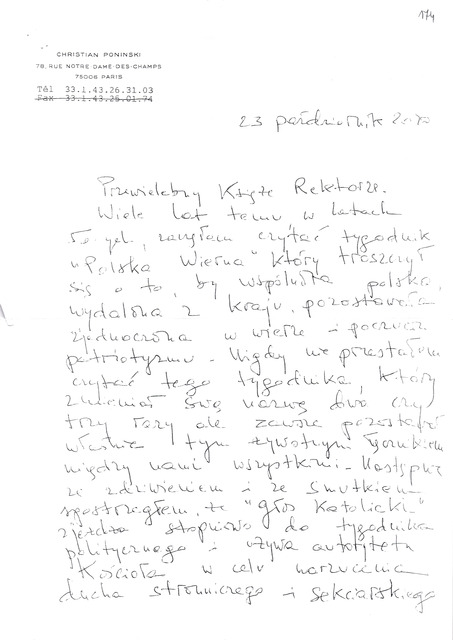 174
CHRISTIAN PONINSKI
78, RUE NOTRE-DAME-DES-CHAMPS
75006 PARIS
Tél 33.1.43.26.31.03
Fax 33.1.43.26.01.74
23 październik
Przewielebny Księże Rektorze.
Wiele lat temu w latach
50-ych, zacząłem czytać tygodnik
"Polska Wierna" który troszczył
się o to, by wspólnota polska,
wydalona z kraju, pozostawała
zjednoczona w wierze i poczuciu
patriotyzmu. Nigdy nie przestałem
czytać tego tygodnika, który
zmieniał swą nazwę dwa czy
trzy razy ale zawsze pozostawał
właśnie tym żywotnym łącznikiem
między nami wszystkimi. Następnie
ze zdziwieniem i ze smutkiem
spostrzegłem, że "głos Katolicki"
zjeżdża stopniowo do tygodnika
politycznego i używa autorytetu
Kościoła w celu narzucenia
ducha stronniczego i sekciarskiego